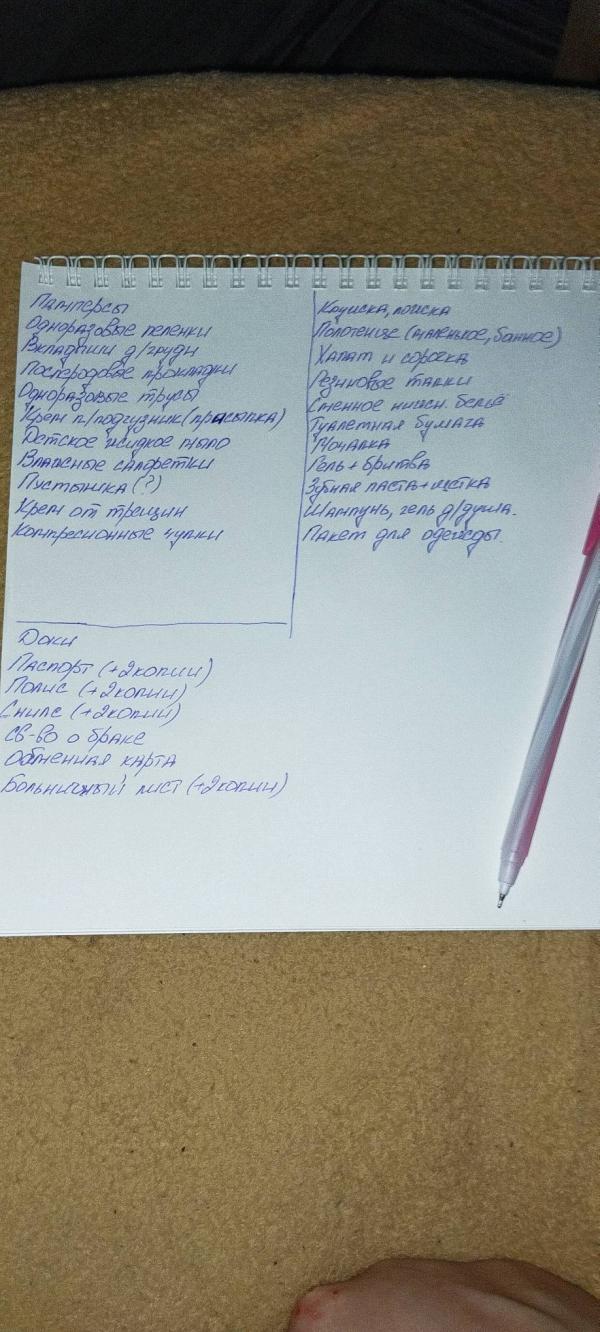 Памперсы
Одноразовые пеленки
Вкладыши д/груди
Послеродовые прокладки
Одноразовые трусы
Крем п/подгузник (присыпка)
Детское жидкое мыло
Влажные салфетки
Пустышка (?)
Крем от трещин
Компресионные чулки
Кружка, ложка
Полотенце (маленькое, банное)
Халат и сорочка
Резиновые тапки
Сменное нижн. бельё
Туалетная бумага
Мочалка
Гель + бритва
Зубная паста + щетка
Шампунь, гель д/душа.
Пакет для одежды.
Доки
Паспорт (+2копии)
Полис (+2копии)
Снилс (+2копии)
Св-во о браке
Обменная карта
Больничный лист (+2копии)